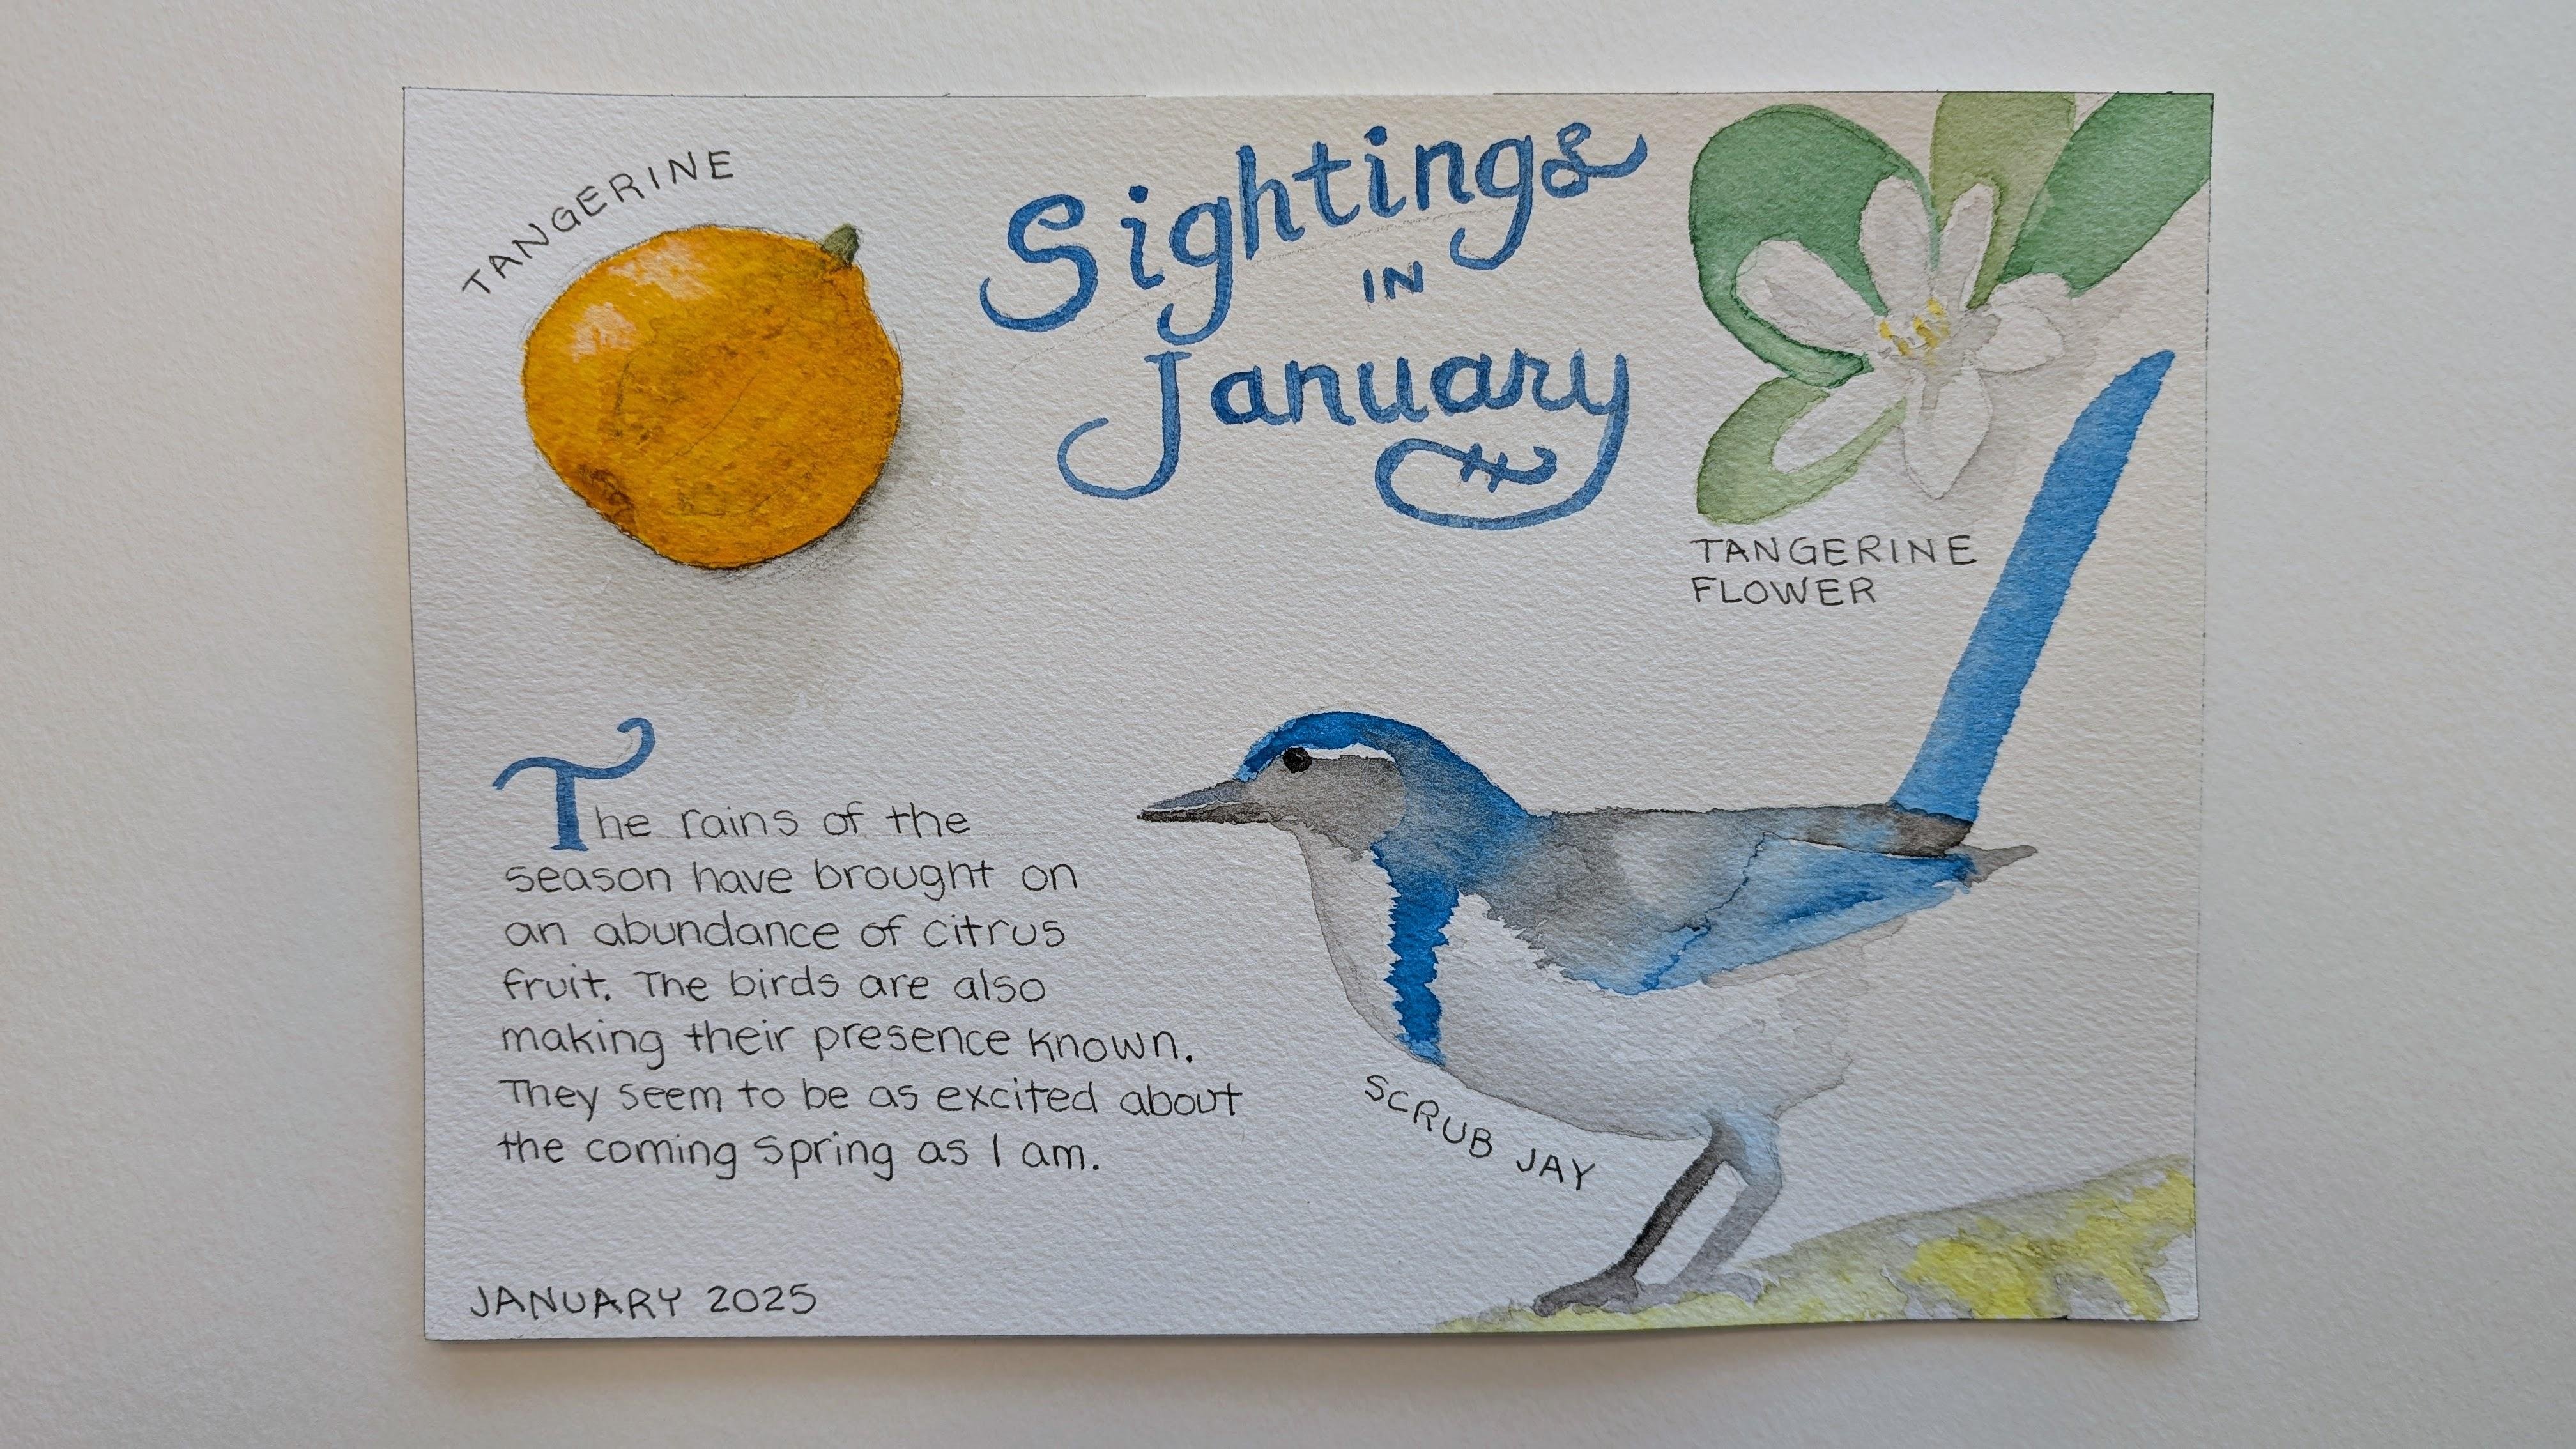 TANGERINE
Sightings
IN
January
TANGERINE
FLOWER
The rains of the
season have brought on
an abundance of citrus
fruit. The birds are also
making their presence known.
They seem to be as excited about
the coming spring as I am.
SCRUB JAY
JANUARY 2025